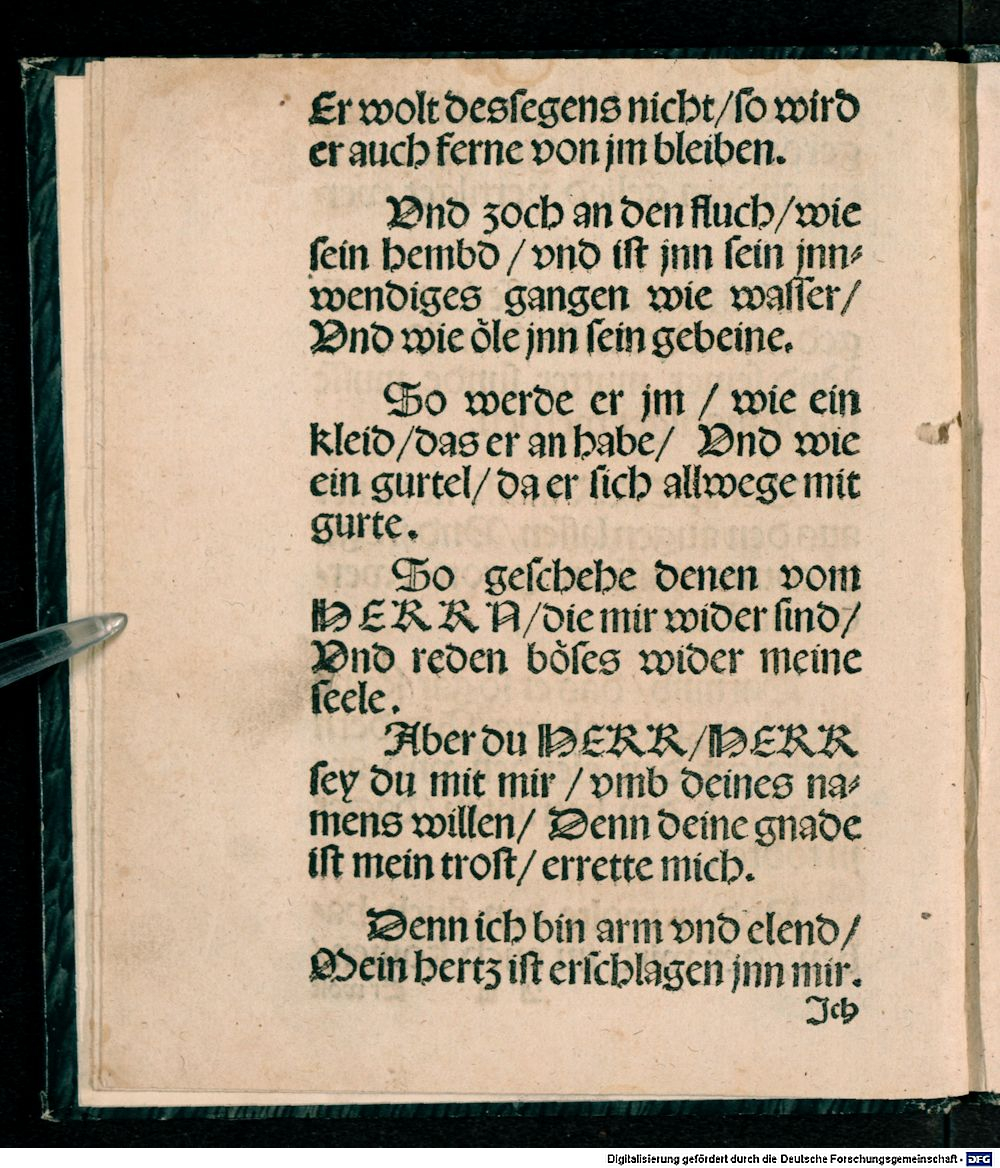 Er wolt des segens nicht/so wird
er auch ferne von jm bleiben.
Vnd zoch an den fluch/wie
sein hembd / vnd ist jnn sein jnn⸗
wendiges gangen wie wasser/
Vnd wie öle jnn sein gebeine.
So werde er jm / wie ein
kleid/das er an habe/ Vnd wie
ein gurtel/ da er sich allwege mit
gurte.
So geschehe denen vom
HERRN/die mir wider sind/
Vnd reden böses wider meine
seele.
Aber du HERR/HERR
sey du mit mir / vmb deines na⸗
mens willen/ Denn deine gnade
ist mein trost/ errette mich.
Denn ich bin arm vnd elend/
Mein hertz ist erschlagen jnn mir.
Ich
Digitalisierung gefördert durch die Deutsche Forschungsgemeinschaft - DFG